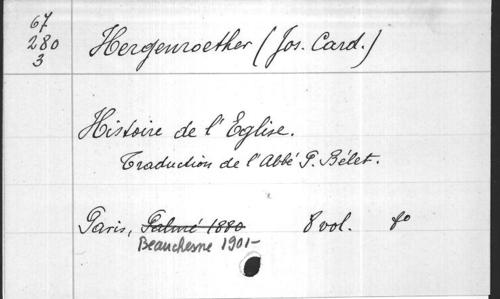 67
280
3
Hergenroether (Jos. Card.)
Histoire de l'Eglise.
Traduction de l'Abbé P. Bélet.
Paris, Palmé 1880 8 vol. fo
Beauchesne 1901-